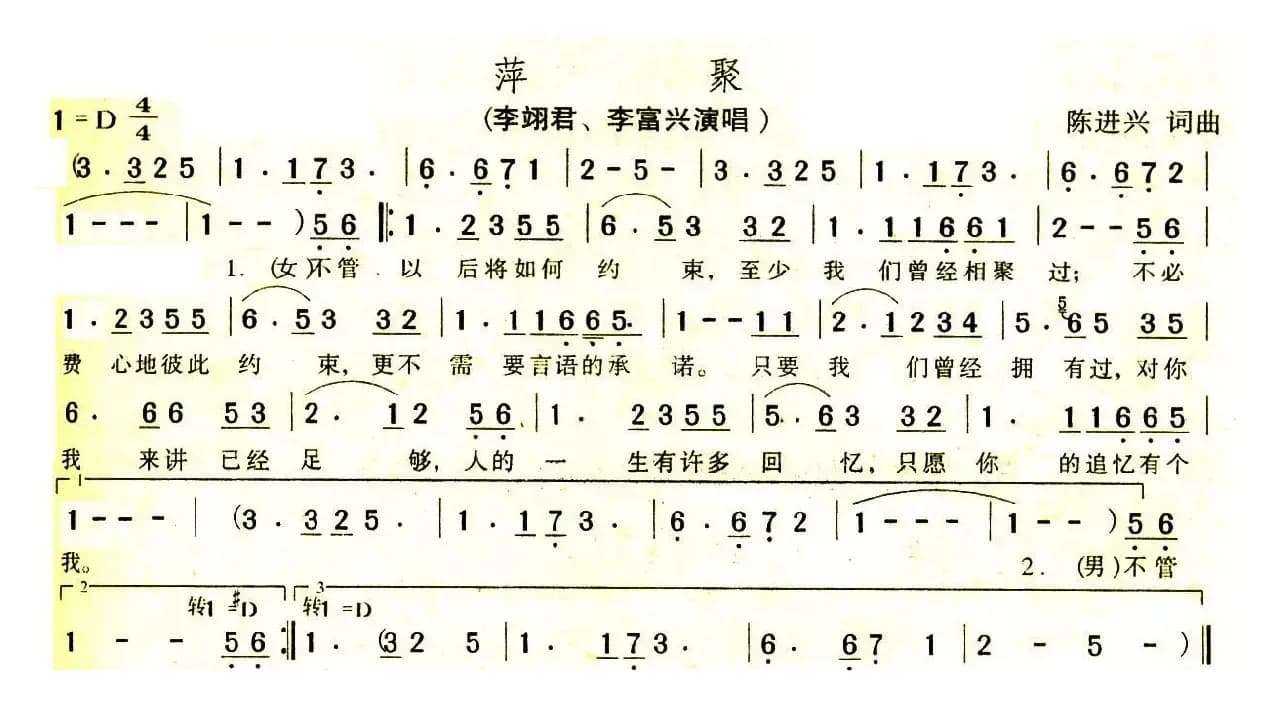 萍 聚
(李翊君、李富兴演唱)
1=D 4/4 陈进兴 词曲
(3. 3 2 5 | 1. 1 7 3. | 6. 6 7 1 | 2 - 5 - | 3. 3 2 5 | 1. 1 7 3. | 6. 6 7 2 |
1 - - - | 1 - - ) 5 6 ‖: 1. 2 3 5 5 | 6. 5 3 3 2 | 1. 1 1 6 6 1 | 2 - - 5 6 |
1. (女)不管 以 后将如何 约 束, 至少 我 们曾经相聚 过; 不必
1. 2 3 5 5 | 6. 5 3 3 2 | 1. 1 1 6 6 5. | 1 - - 1 1 | 2. 1 2 3 4 | 5. 5 6 5 3 5 |
费 心地彼此 约 束, 更不 需 要言语的承 诺。 只要 我 们曾经 拥 有过, 对你
6. 6 6 5 3 | 2. 1 2 5 6 | 1. 2 3 5 5 | 5. 6 3 3 2 | 1. 1 1 6 6 5 |
我 来讲 已经 足 够, 人的 一 生有许多 回 忆, 只愿 你 的追忆有个
1
1 - - - | (3. 3 2 5. | 1. 1 7 3. | 6. 6 7 2 | 1 - - - | 1 - - ) 5 6
我。 2. (男)不管
2 3
转1=#D 转1=D
1 - - 5 6 :‖ 1. (3 2 5 | 1. 1 7 3. | 6. 6 7 1 | 2 - 5 - ) ‖